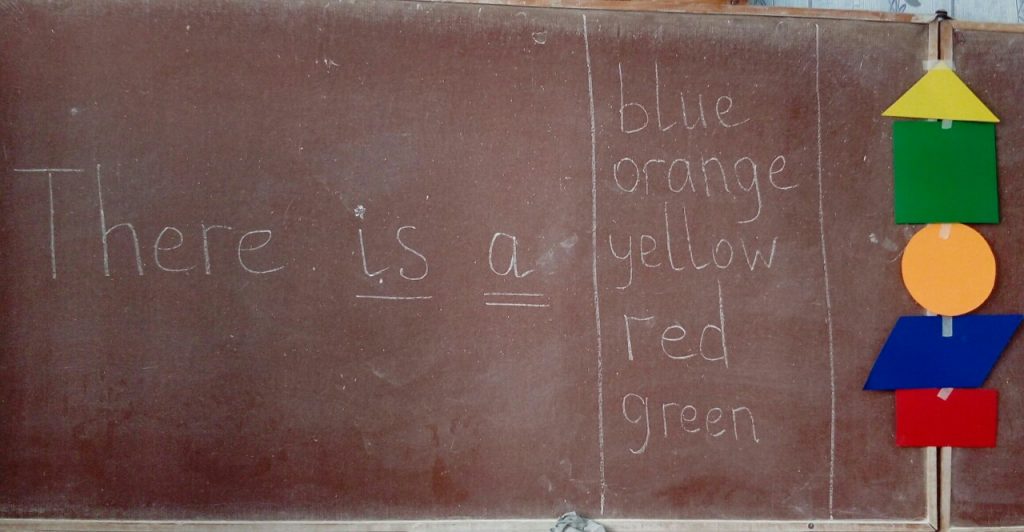 There is a
blue
orange
yellow
red
green